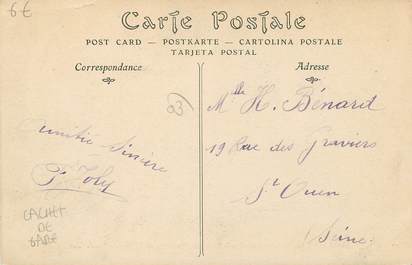 6€
Carte Postale
POST CARD — POSTKARTE — CARTOLINA POSTALE
TARJETA POSTAL
Correspondance
Adresse
93
Amitié Sincère
P. Joly
CACHET
DE
GARE
Mlle H. Bénard
19 Rue des Graviers
St Ouen
Seine